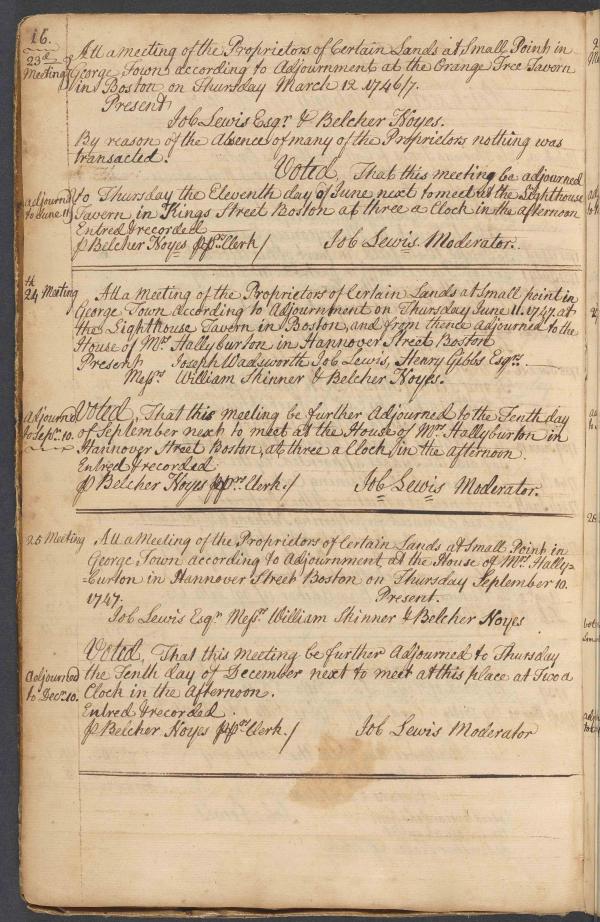 16.
23d Meeting
At a meeting of the Proprietors of Certain Lands at Small Point in
George Town according to Adjournment at the Orange Tree Tavern
in Boston on Thursday March 12 1746/7.
Present
Job Lewis Esqr & Belcher Noyes.
By reason of the Absence of many of the Proprietors nothing was
transacted.
Voted, That this meeting be adjourned
adjournd
to June 11
to Thursday the Eleventh day of June next to meet at the Lighthouse
Tavern in Kings Street Boston at three a Clock in the afternoon
Entred & recorded
p Belcher Noyes pprs Clerk / Job Lewis Moderator.
24th Meeting
At a Meeting of the Proprietors of Certain Lands at Small point in
George Town according to Adjournment on Thursday June 11. 1747. at
the Lighthouse Tavern in Boston, and from thence adjourned to the
House of Mrs Hallyburton in Hannover Street Boston
Present Joseph Wadsworth Job Lewis, Henry Gibbs Esqrs.
Messrs William Skinner & Belcher Noyes.
Adjournd
to Septr. 10.
Voted, That this meeting be further Adjourned to the Tenth day
of September next to meet at the House of Mrs Hallyburton in
Hannover Street Boston, at three a Clock in the afternoon.
Entred & recorded
p Belcher Noyes pprs Clerk. / Job Lewis Moderator.
25 Meeting
At a Meeting of the Proprietors of Certain Lands at Small Point in
George Town according to Adjournment at the House of Mrs Hally-
-burton in Hannover Street Boston on Thursday September 10.
1747. Present.
Job Lewis Esqr Messrs William Skinner & Belcher Noyes
Voted, That this Meeting be further Adjourned to Thursday
Adjournd
to Decr. 10.
the Tenth day of December next to meet at this place at Two a
Clock in the Afternoon.
Entred & recorded.
p Belcher Noyes pprs Clerk. / Job Lewis Moderator